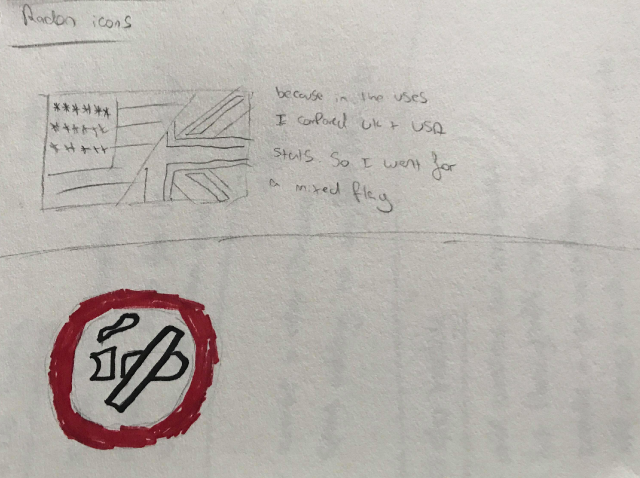 Radon icons
because in the uses
I compared UK + USA
stats So I went for
a mixed flag